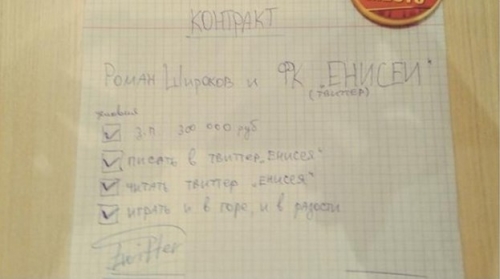 КОНТРАКТ
Роман Широков и ФК „ЕНИСЕЙ"
(ТВИТТЕР)
условия
З.П. 300 000 руб
ПИСАТЬ В ТВИТТЕР „ЕНИСЕЯ"
ЧИТАТЬ ТВИТТЕР „ЕНИСЕЯ"
ИГРАТЬ И В ГОРЕ, И В РАДОСТИ
Twitter